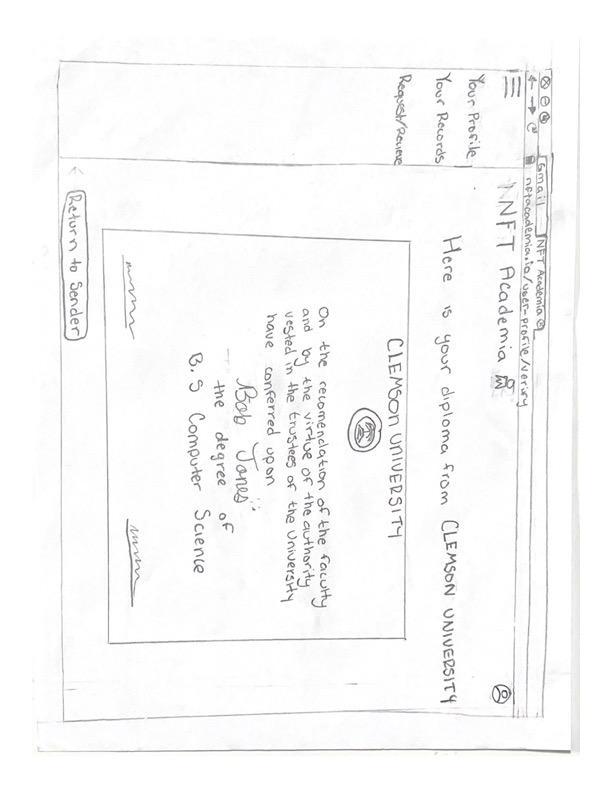 Gmail NFT Academia
nftacademia.io/user-profile/verify
NFT Academia
Your Profile
Your Records
Request/Recieve
Here is your diploma from CLEMSON UNIVERSITY
CLEMSON UNIVERSITY
On the recomendation of the faculty
and by the virtue of the authority
vested in the trustees of the University
have conferred upon
Bob Jones
the degree of
B. S Computer Science
Return to Sender